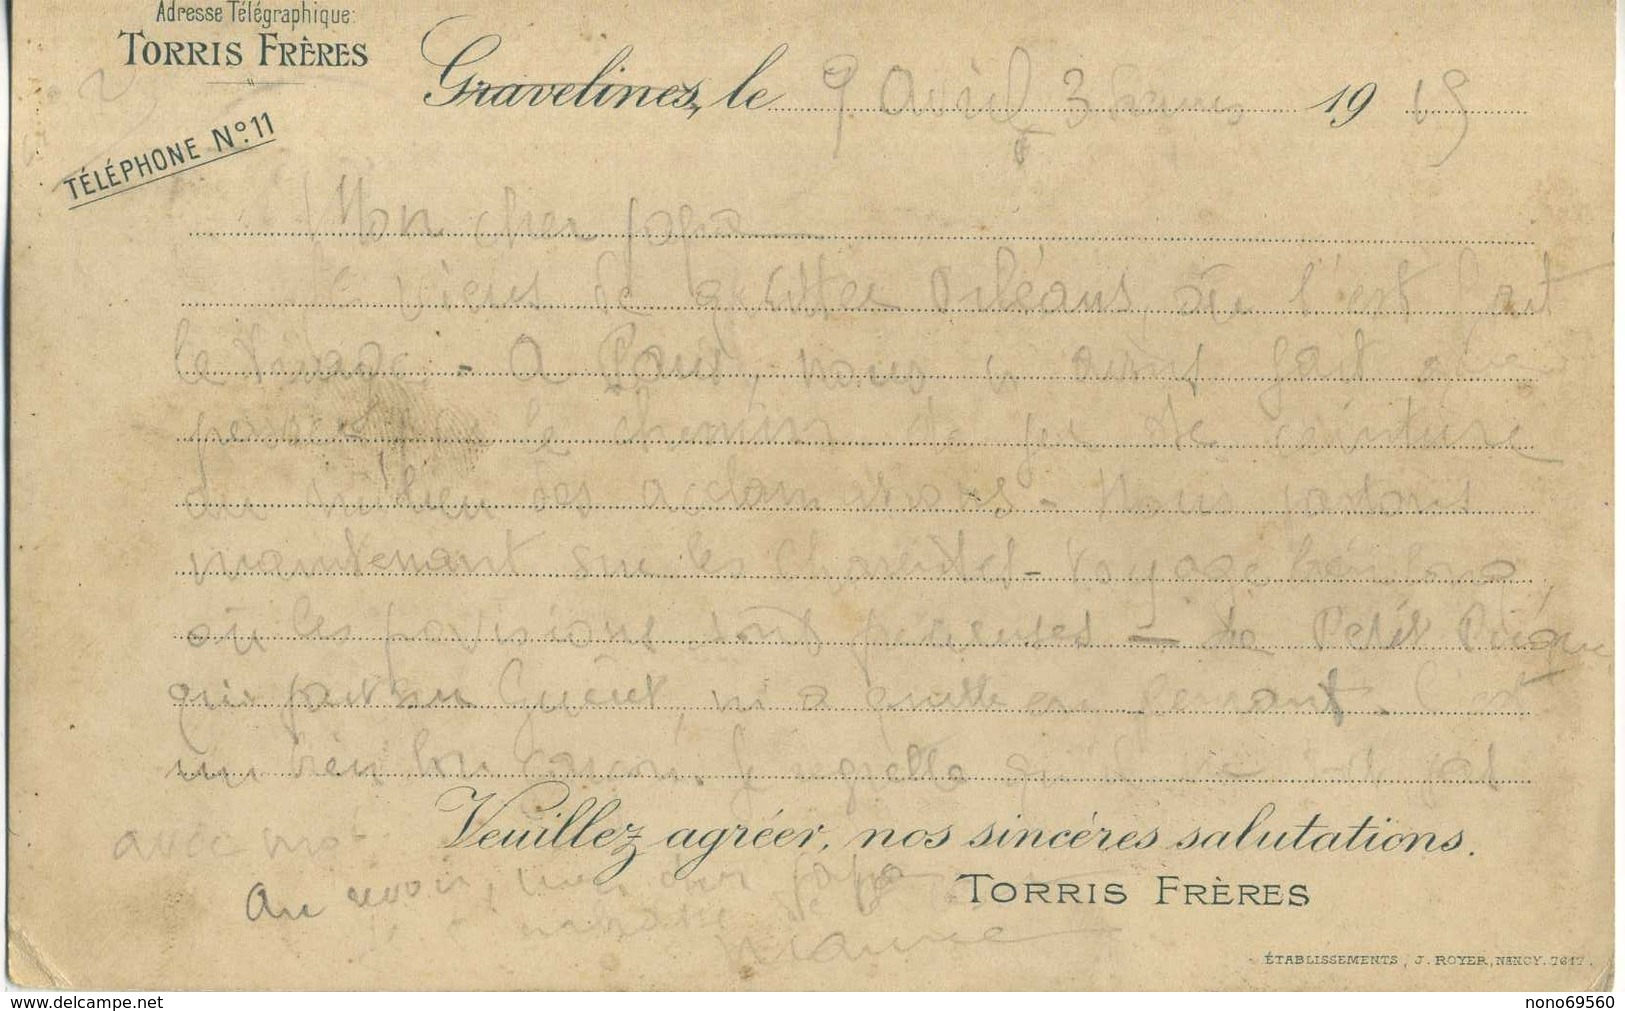 Adresse Télégraphique:
TORRIS FRÈRES
TÉLÉPHONE N° 11
Gravelines, le 9 Avril, 3 heures 1915
Mon cher papa
Je viens de quitter Orléans, où l'est fait
le - A Paris, nous n'avons fait que
le chemin de fer de ceinture
au milieu des acclamations - Nous partons
maintenant sur les - Voyage bien long,
où les provisions sont précieuses - Le Petit
qui part sur Guéret, m'a quitté en pleurant. C'est
un bien bon garçon. Je regrette qu'il ne soit pas
avec moi
Veuillez agréer, nos sincères salutations.
TORRIS FRÈRES
Au revoir, mon cher papa
de
Maurice
ÉTABLISSEMENTS, J. ROYER, NANCY. 7617.
www.delcampe.net
nono69560